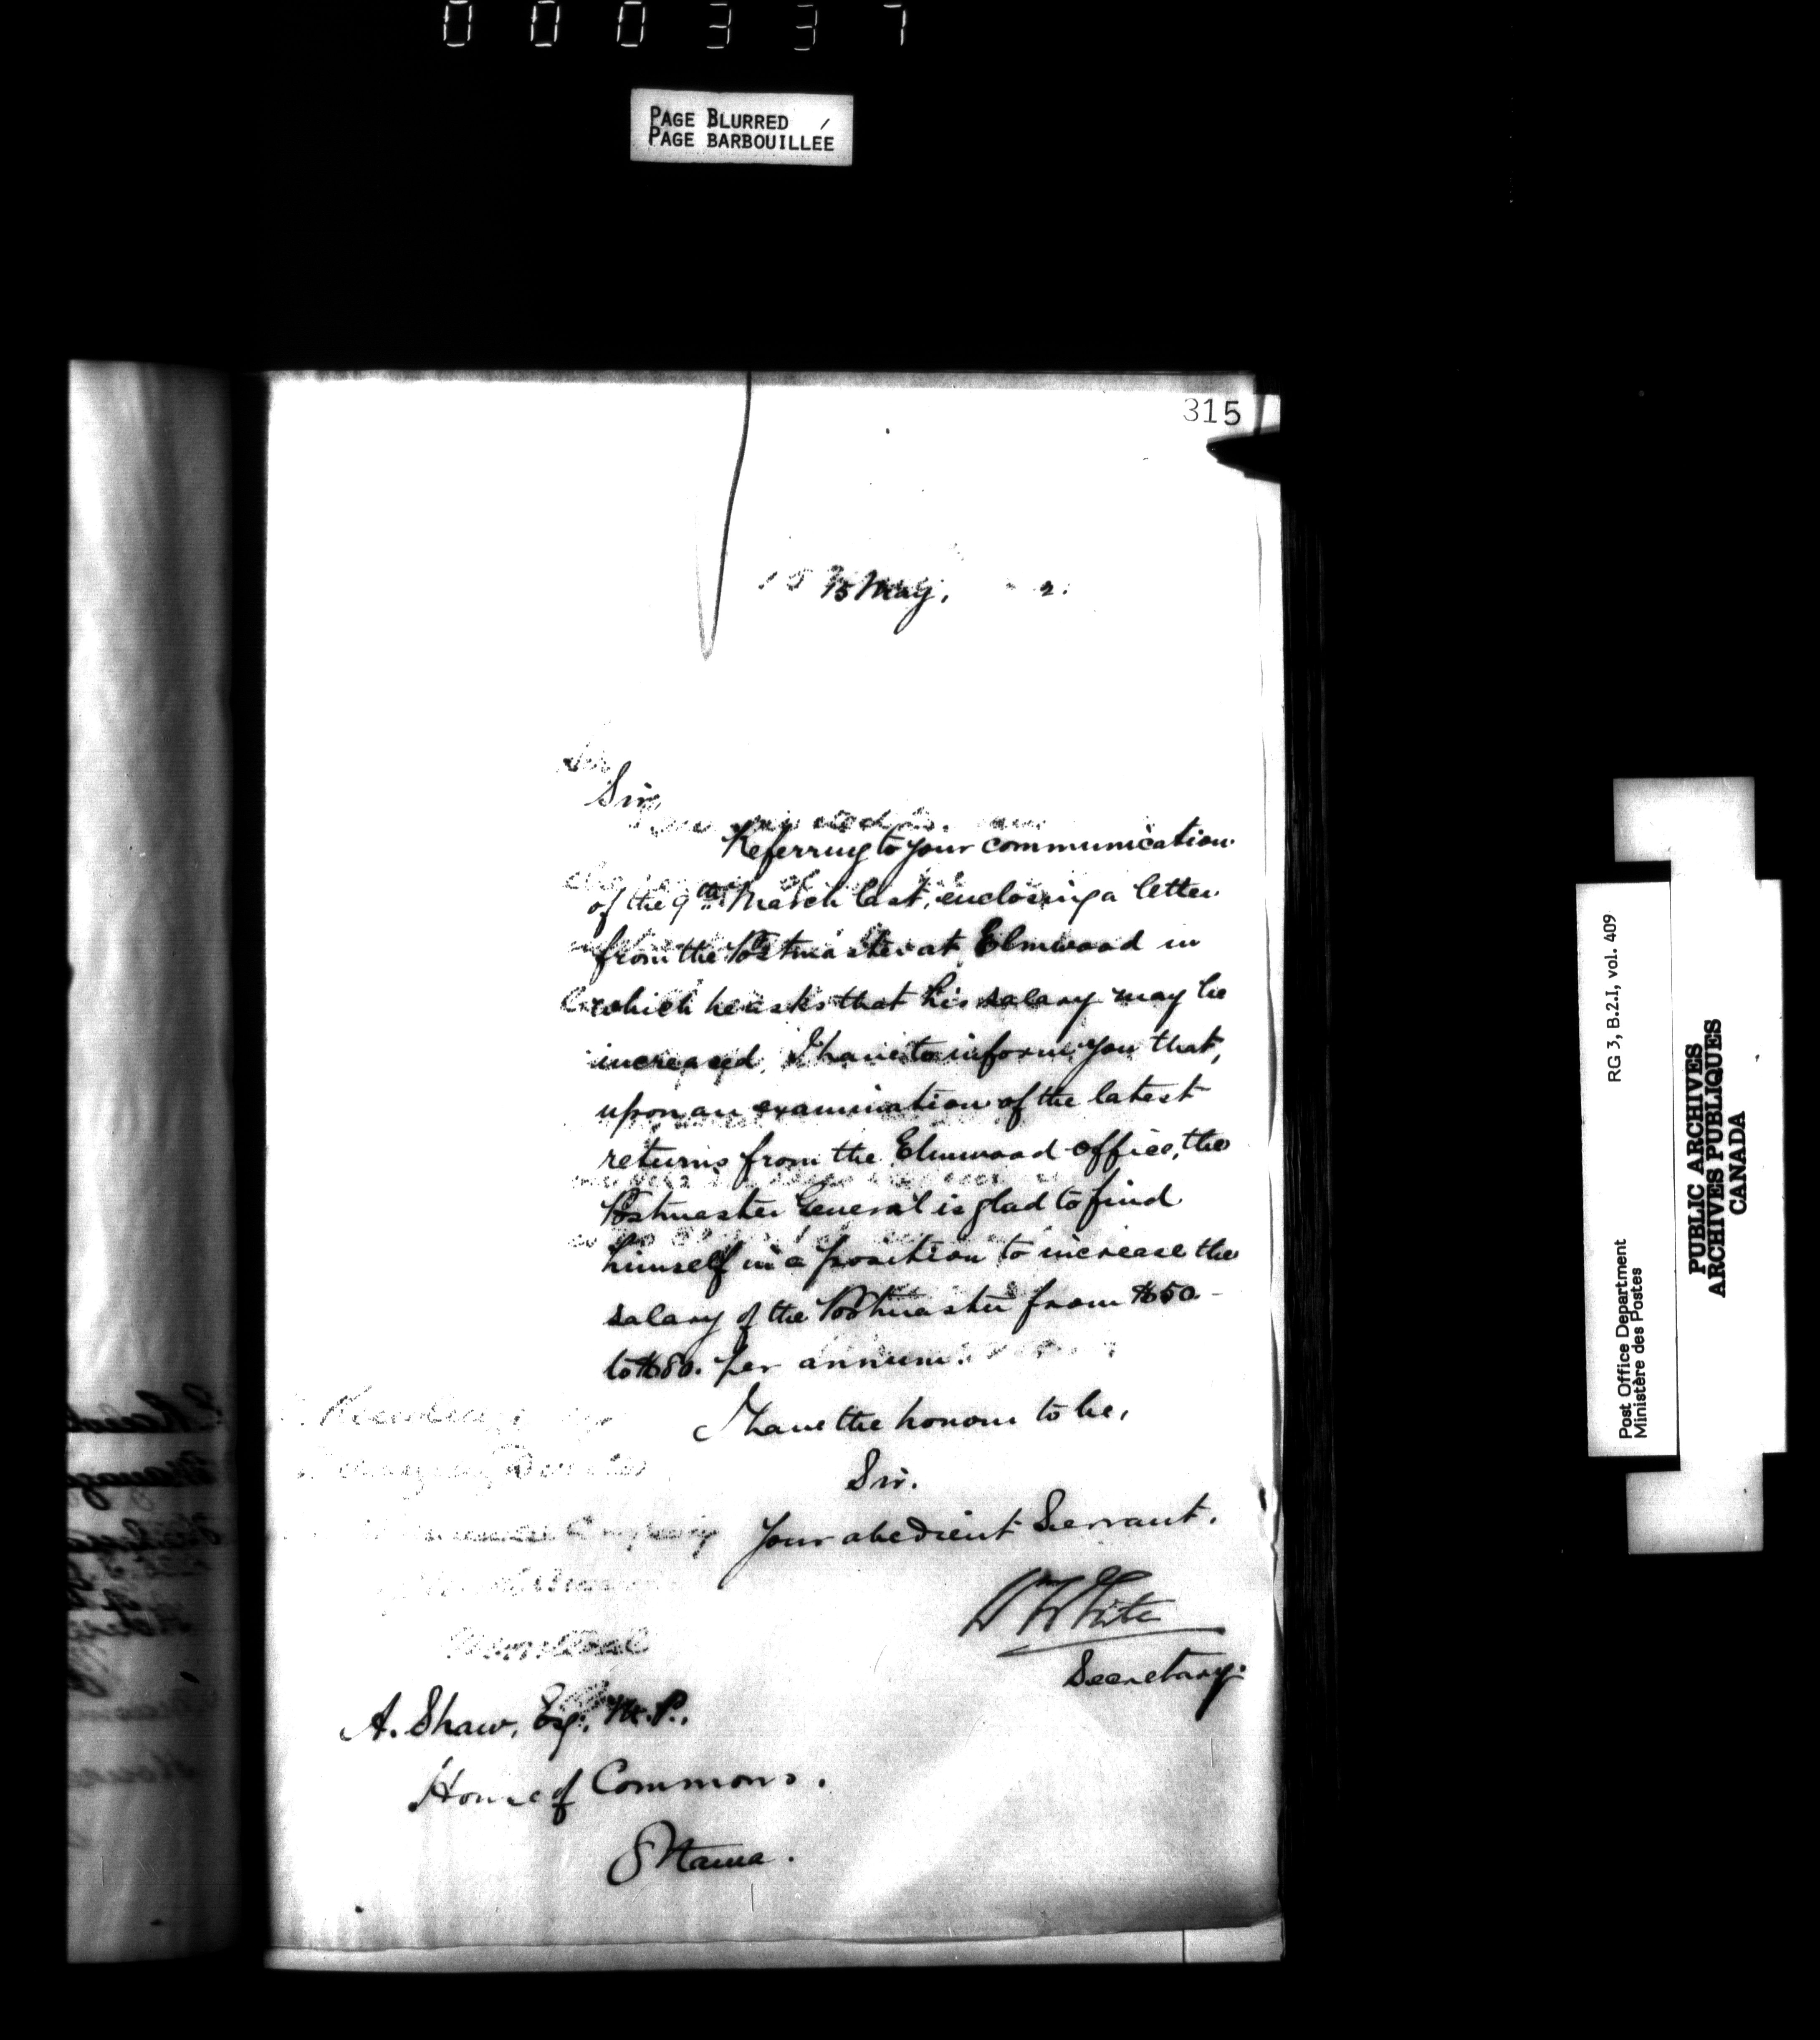 000337
PAGE BLURRED
PAGE BARBOUILLÉE
315
15 May, 2.
Sir,
Referring to your communication
of the 9th March last, enclosing a letter
from the Postmaster at Elmwood in
which he asks that his salary may be
increased, I have to inform you that,
upon an examination of the latest
returns from the Elmwood Office, the
Postmaster General is glad to find
himself in a position to increase the
salary of the Postmaster from $50
to $80. per annum.
I have the honour to be,
Sir.
Your obedient Servant.
W White
Secretary.
A. Shaw, Esq. M.P.,
House of Commons.
Ottawa.
RG 3, B.2.I, vol. 409
Post Office Department
Ministère des Postes
PUBLIC ARCHIVES
ARCHIVES PUBLIQUES
CANADA